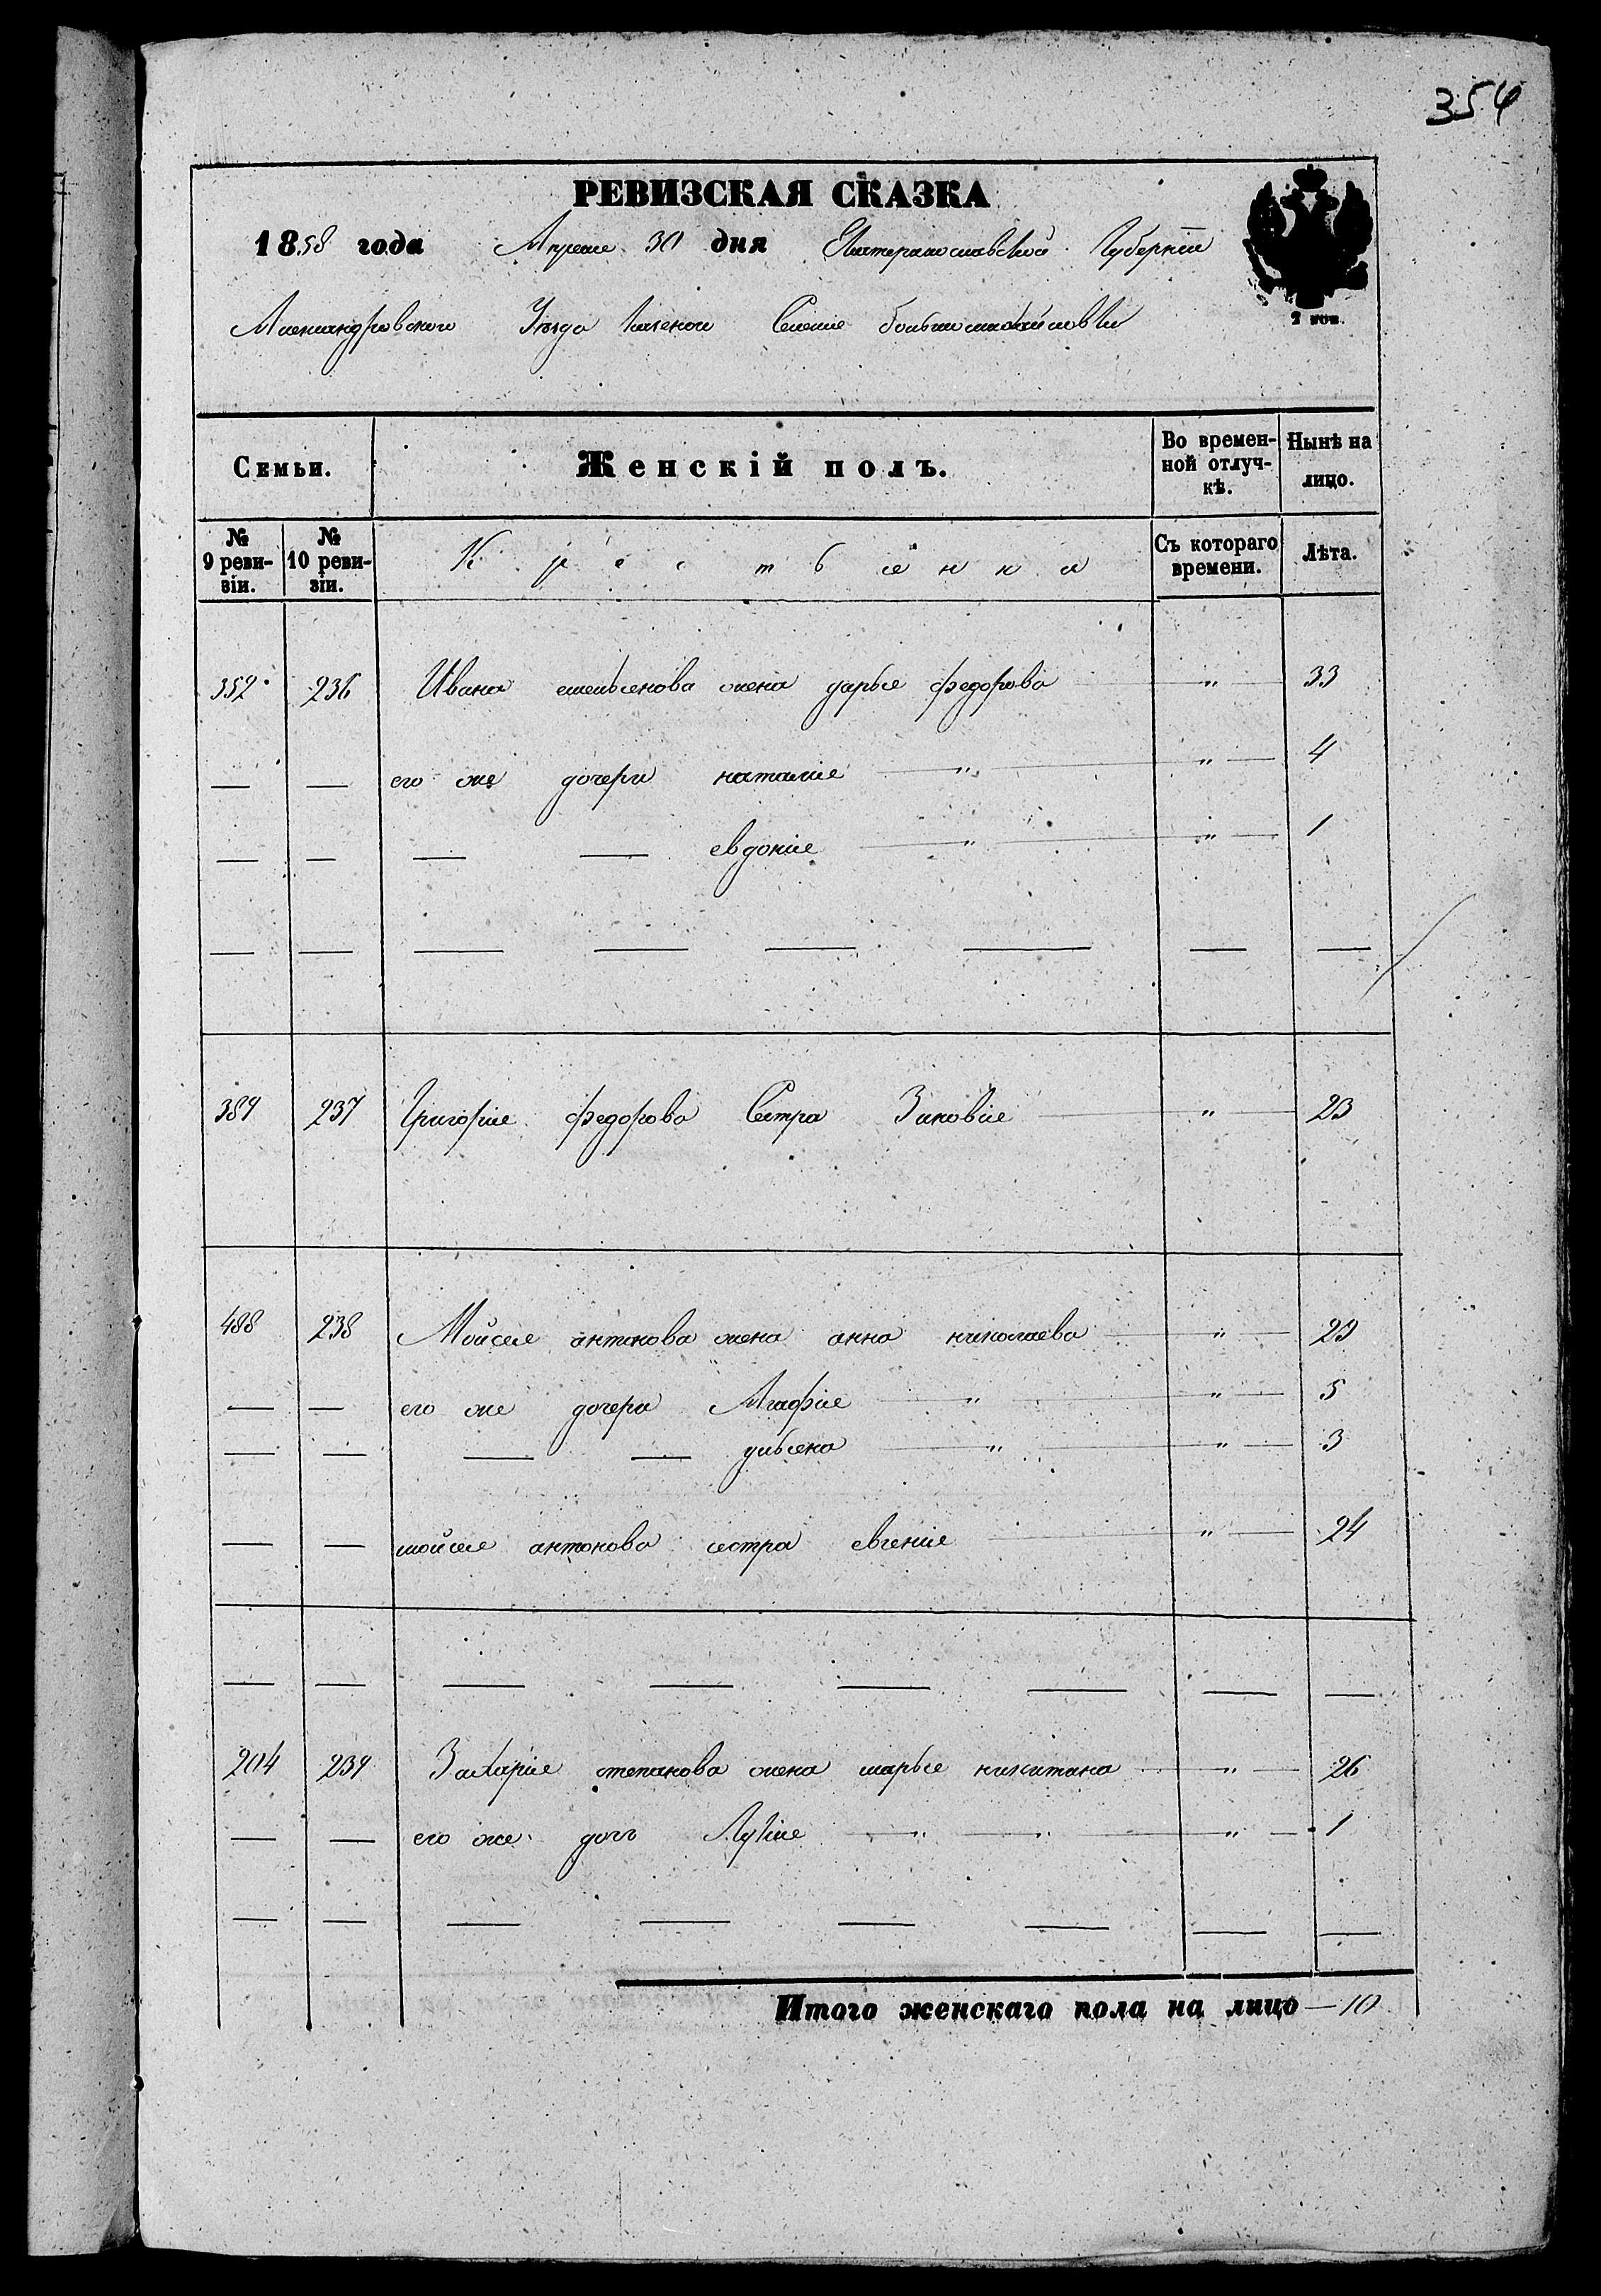 354
РЕВИЗСКАЯ СКАЗКА
1858 года Апреля 30 дня Екатеринославской Губерніи
Александровского Уезда казеного Селенія большемихайловки
2 коп.
Семьи. Женскій полъ. Во временной отлучкѣ. Нынѣ на лицо.
№ 9 ревизіи. № 10 ревизіи. Крестьяне Съ котораго времени. Лѣта.
352 236 Ивана емельенова жена дарья федорова — " 33
— — его же дочери наталіе — " — " — 4
— — — — евдокіе — " — " — 1
— — — — — — — —
389 237 Григоріе федорова Сестра Зиновіе — " — 23
488 238 Мойсее антонова жена анна николаева — " — 29
— — его же дочери Агафіе — " — " — 5
— — — — ульена — " — " — 3
— — мойсее антонова сестра евгеніе — " — 24
— — — — — — — —
204 239 Захаріе степанова жена марье никитина — " — 26
— — его же дочь Лукіе — " — " — " — 1
— — — — — — — —
Итого женскаго пола на лицо — 10